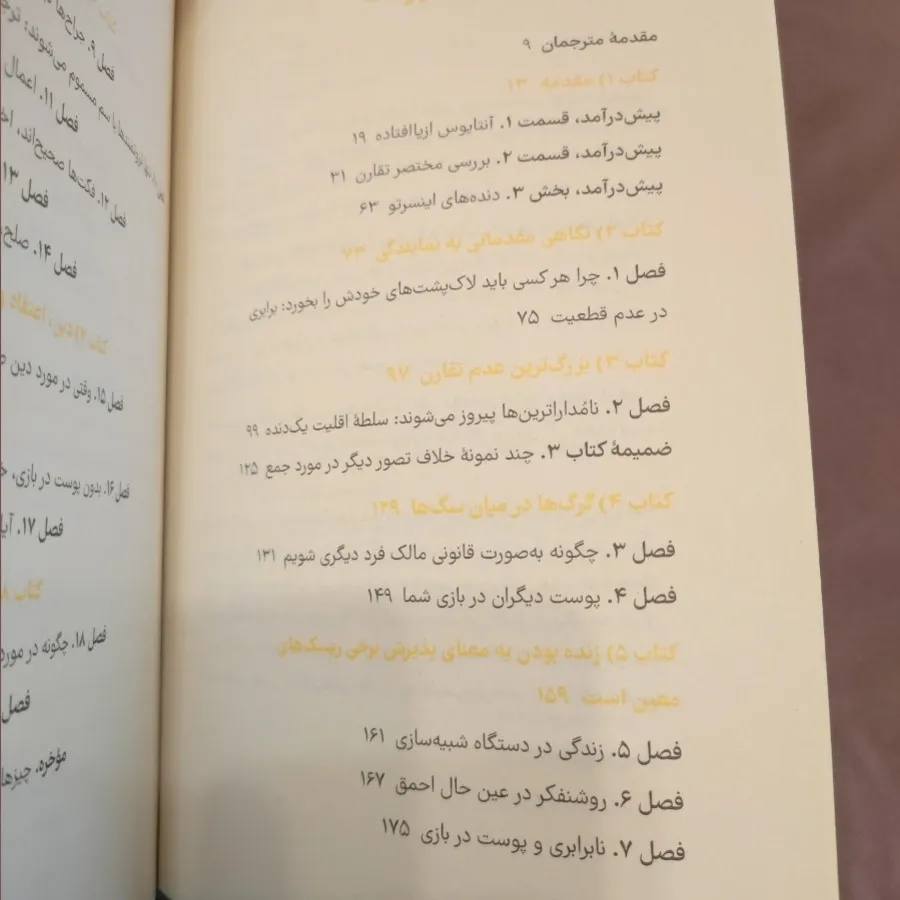 مقدمهٔ مترجمان ۹
کتاب ۱) مقدمه ۱۳
پیش‌درآمد، قسمت ۱. آنتایوس ازپاافتاده ۱۹
پیش‌درآمد، قسمت ۲. بررسی مختصر تقارن ۳۱
پیش‌درآمد، بخش ۳. دنده‌های اینسرتو ۶۳
کتاب ۲) نگاهی مقدماتی به نمایندگی ۷۳
فصل ۱. چرا هر کسی باید لاک‌پشت‌های خودش را بخورد: برابری
در عدم قطعیت ۷۵
کتاب ۳) بزرگ‌ترین عدم تقارن ۹۷
فصل ۲. نامُداراترین‌ها پیروز می‌شوند: سلطهٔ اقلیت یک‌دنده ۹۹
ضمیمهٔ کتاب ۳. چند نمونهٔ خلاف تصور دیگر در مورد جمع ۱۲۵
کتاب ۴) گرگ‌ها در میان سگ‌ها ۱۲۹
فصل ۳. چگونه به‌صورت قانونی مالک فرد دیگری شویم ۱۳۱
فصل ۴. پوست دیگران در بازی شما ۱۴۹
کتاب ۵) زنده بودن به معنای پذیرش برخی ریسک‌های
معین است ۱۵۹
فصل ۵. زندگی در دستگاه شبیه‌سازی ۱۶۱
فصل ۶. روشنفکر در عین حال احمق ۱۶۷
فصل ۷. نابرابری و پوست در بازی ۱۷۵
فصل ۹. جراح‌ها
با سم مسموم می‌شوند:
فصل ۱۱. اعمال
فصل ۱۲. فکت‌ها صحیح‌اند،
فصل ۱۳
فصل ۱۴. صلح،
کتاب ۷) دین، اعتقاد
فصل ۱۵. وقتی در مورد دین
فصل ۱۶. بدون پوست در بازی،
فصل ۱۷. آیا
کتاب ۸
فصل ۱۸. چگونه در مورد
فصل
مؤخره. چیزها